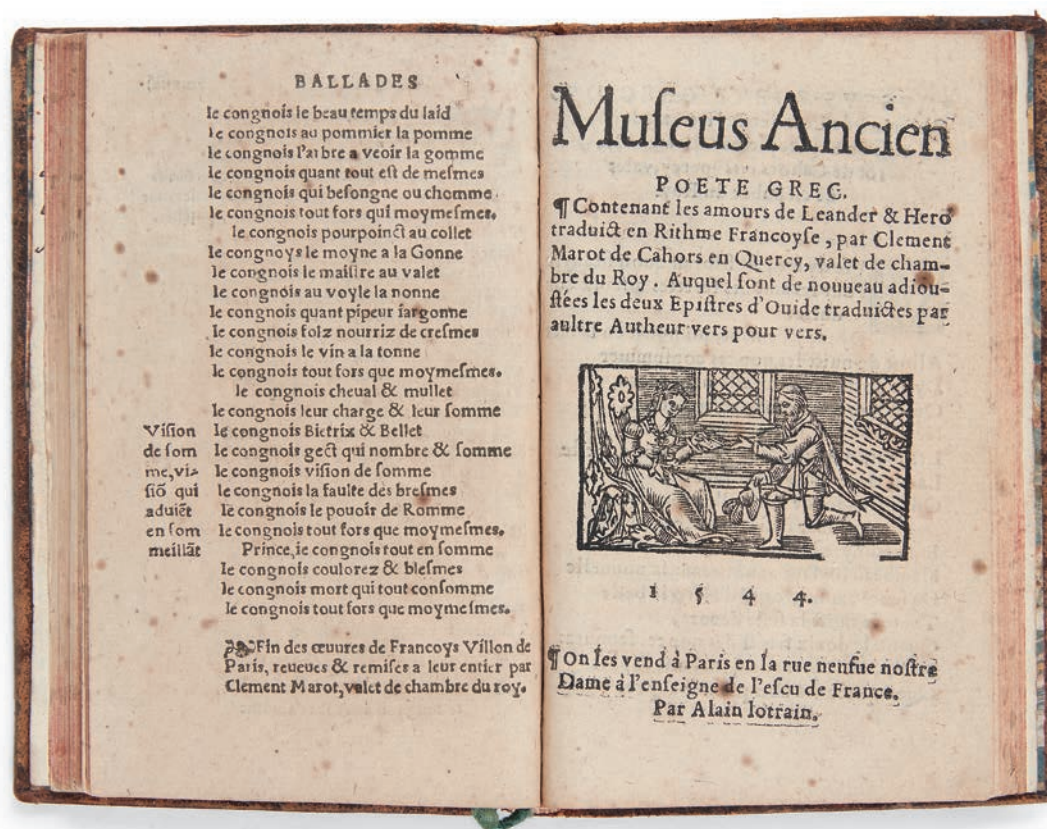 BALLADES
Ie congnois le beau temps du laid
Ie congnois au pommier la pomme
Ie congnois l'arbre a veoir la gomme
Ie congnois quant tout est de mesmes
Ie congnois qui besongne ou chomme.
Ie congnois tout fors qui moymesmes.
Ie congnois pourpoinct au collet
Ie congnoys le moyne a la Gonne
Ie congnois le maistre au valet
Ie congnois au voyle la nonne
Ie congnois quant pipeur iargonne
Ie congnois folz nourriz de cresmes
Ie congnois le vin a la tonne
Ie congnois tout fors que moymesmes.
Ie congnois cheual & mullet
Ie congnois leur charge & leur somme
Ie congnois Bietrix & Bellet
Ie congnois gect qui nombre & somme
Ie congnois vision de somme
Ie congnois la faulte des bresmes
Ie congnois le pouoir de Romme
Ie congnois tout fors que moymesmes.
Prince, ie congnois tout en somme
Ie congnois coulorez & blesmes
Ie congnois mort qui tout consomme
Ie congnois tout fors que moymesmes.
Vision
de som
me, vi-
siõ qui
aduiẽt
en som
meillãt
Fin des œuures de Francoys Villon de
Paris, reueues & remises a leur entier par
Clement Marot, valet de chambre du roy.
Museus Ancien
POETE GREC.
¶ Contenant les amours de Leander & Hero
traduict en Rithme Francoyse, par Clement
Marot de Cahors en Quercy, valet de cham-
bre du Roy. Auquel sont de nouueau adiou-
stées les deux Epistres d'Ouide traduictes par
aultre Autheur vers pour vers.
1 5 4 4.
¶ On les vend à Paris en la rue neufue nostre
Dame à l'enseigne de l'escu de France.
Par Alain lotrain.